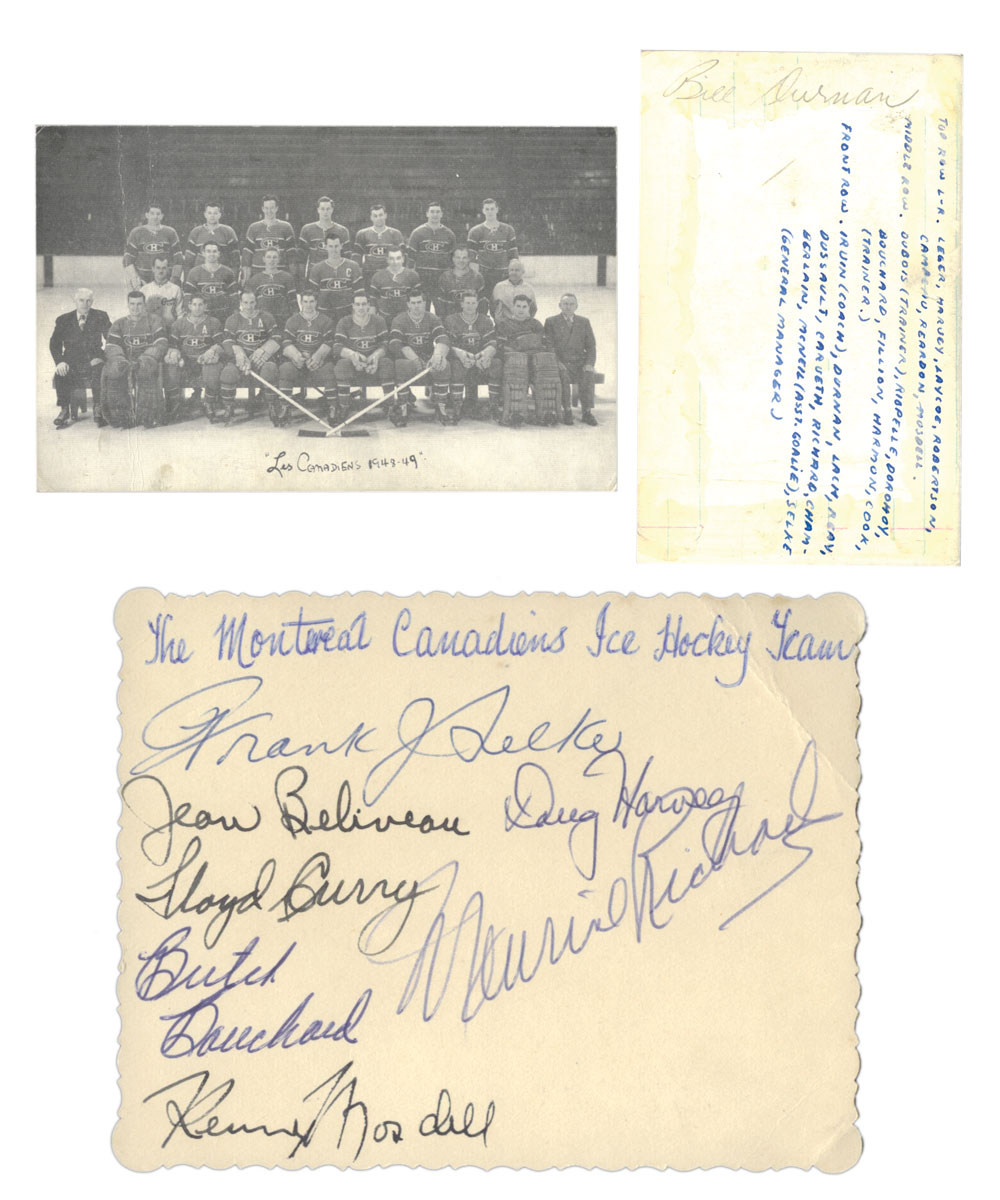 "Les Canadiens 1948-49"
Bill Durnan
TOP ROW L-R. LEGER, HARVEY, LAYCOE, ROBERTSON,
CAMPEAU, REARDON, MOSDELL.
MIDDLE ROW. DUBOIS (TRAINER), RIOPELLE, DOROHOY,
BOUCHARD, FILLION, HARMON, COOK,
(TRAINER.)
FRONT ROW. IRVIN (COACH), DURNAN, LACH, REAY,
DUSSAULT, CARVETH, RICHARD, CHAM-
BERLAIN, MCNEIL (ASST. GOALIE), SELKE
(GENERAL MANAGER)
The Montreal Canadiens Ice Hockey Team
Frank J Selke
Jean Beliveau Doug Harvey
Floyd Curry
Maurice Richard
Butch
Bouchard
Kenny Mosdell